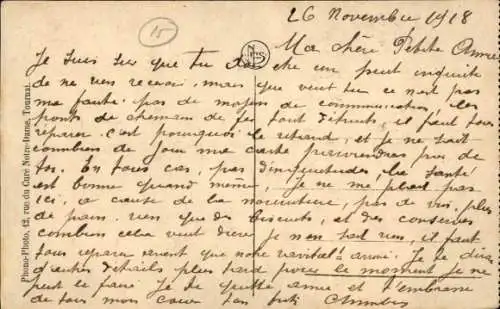 26 Novembre 1918
15
Ma chère Petite Amie
Je suis sur que tu dois être un peut inquiete
de ne rien recevoir, mais que veut tu ce n'est pas
ma faute. pas de moyen de communication, les
ponts de chemain de fer tout détruits, il faut tous
réparer. c'est pourquoi le retard, et je ne sait
combien de jour ma carte parviendras pres de
toi. En tous cas, pas d'inquietudes, la santé
est bonne quand meme, je ne me plait pas
ici, a cause de la nourriture, pas de vin, plus
de pain. rien que des biscuits, et des conserves
combien cela veut durer je n'en sait rien, il faut
tous reparer avant que notre ravitail arrive. Je te dirai
d'autres détails plus tard pour le moment je ne
peut le faire. Je te quitte amie et t'embrasse
de tous mon cœur ton petit
Phono-Photo, 12, rue du Curé Notre-Dame, Tournai.